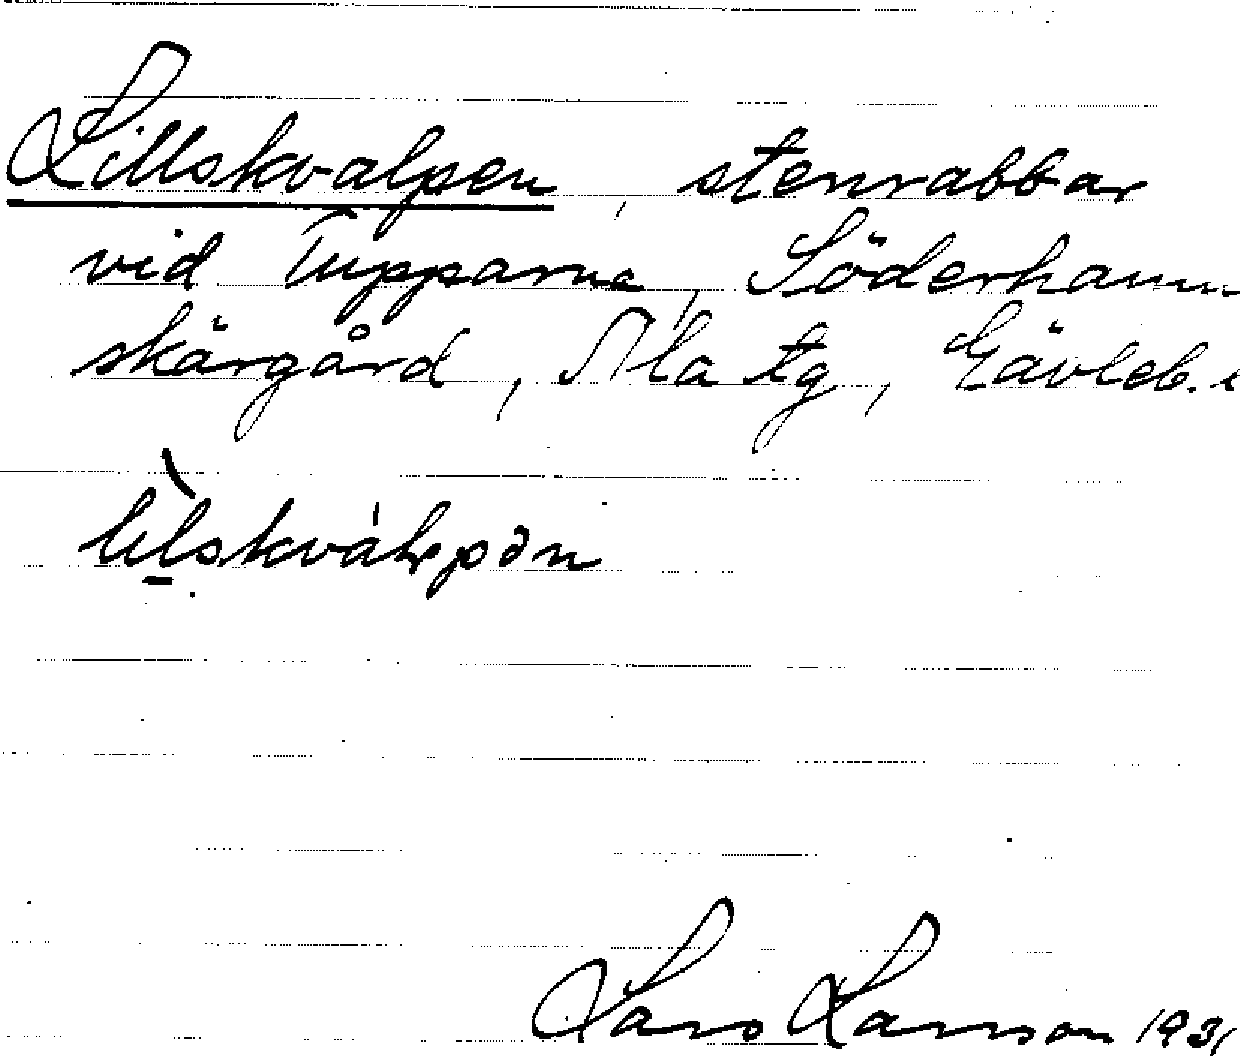 Lillskvalpen, stenrabbar
vid Tupparna, Söderhamn
skärgård, Ala tg, Gävleb.
lilskvalpən
Lars Larsson 1931